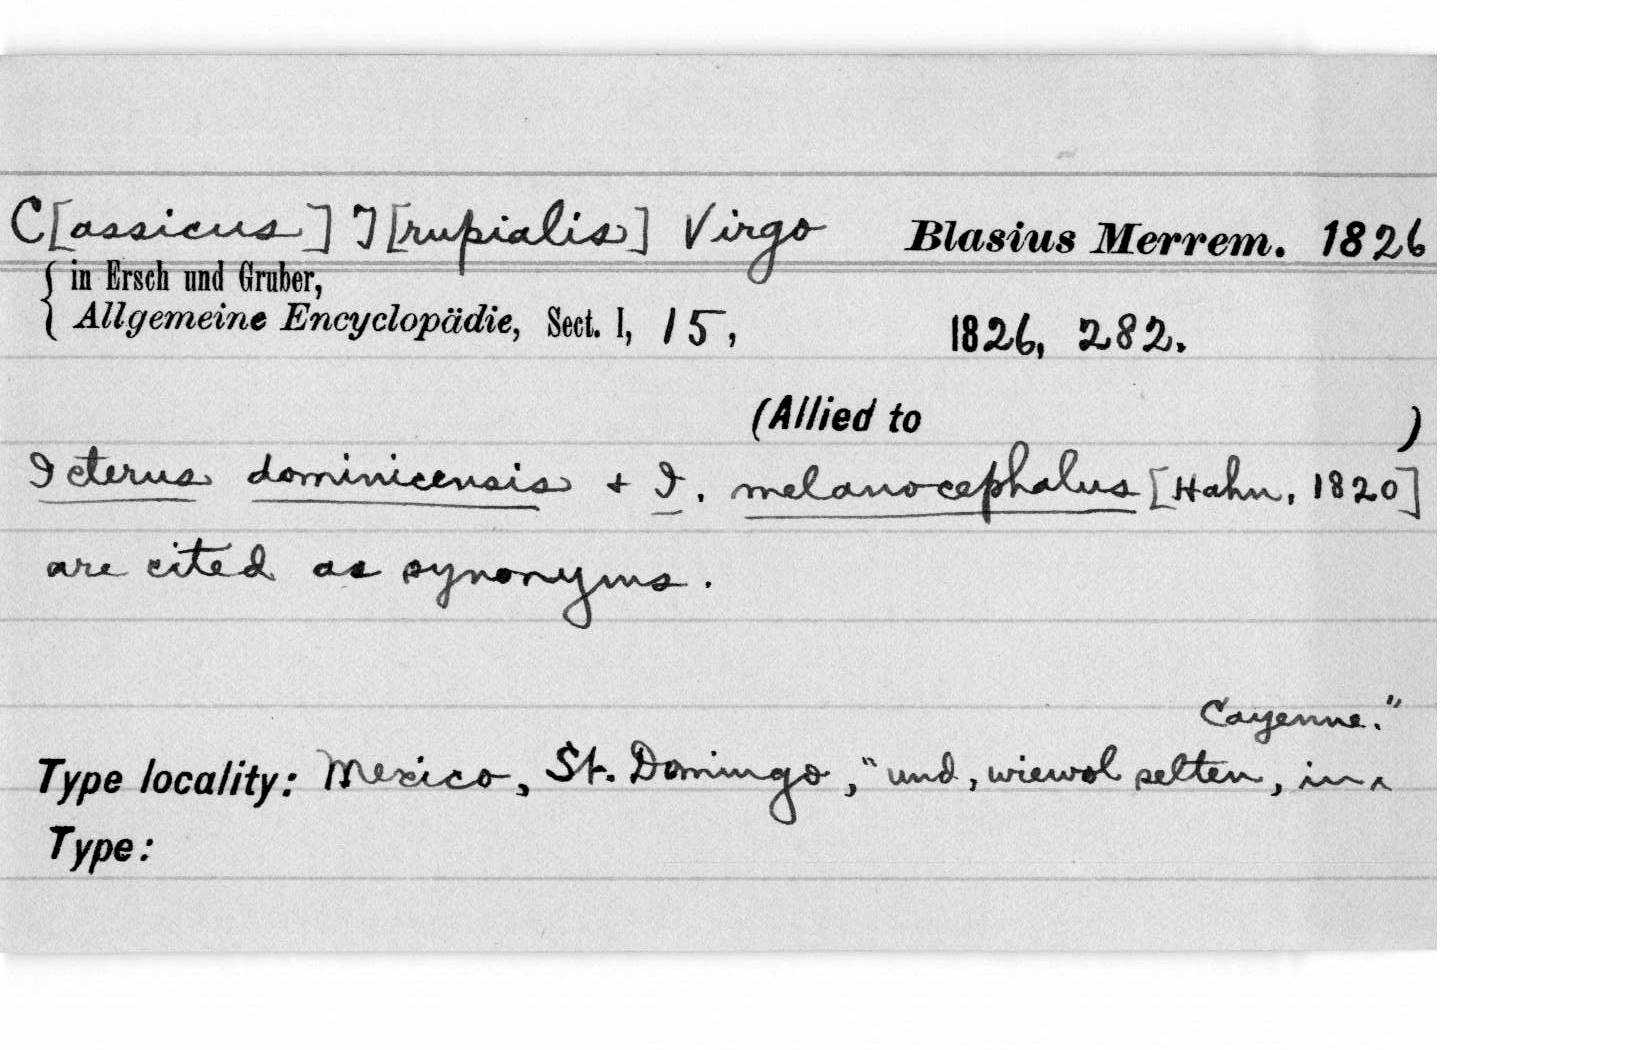 C[assicus] T[rupialis] Virgo Blasius Merrem. 1826
{ in Ersch und Gruber,
Allgemeine Encyclopädie, Sect. I, 15, 1826, 282.
(Allied to )
Icterus dominicensis + I. melanocephalus [Hahn, 1820]
are cited as synonyms.
Cayenne."
Type locality: Mexico, St. Domingo, "und, wiewol selten, in ‸
Type: